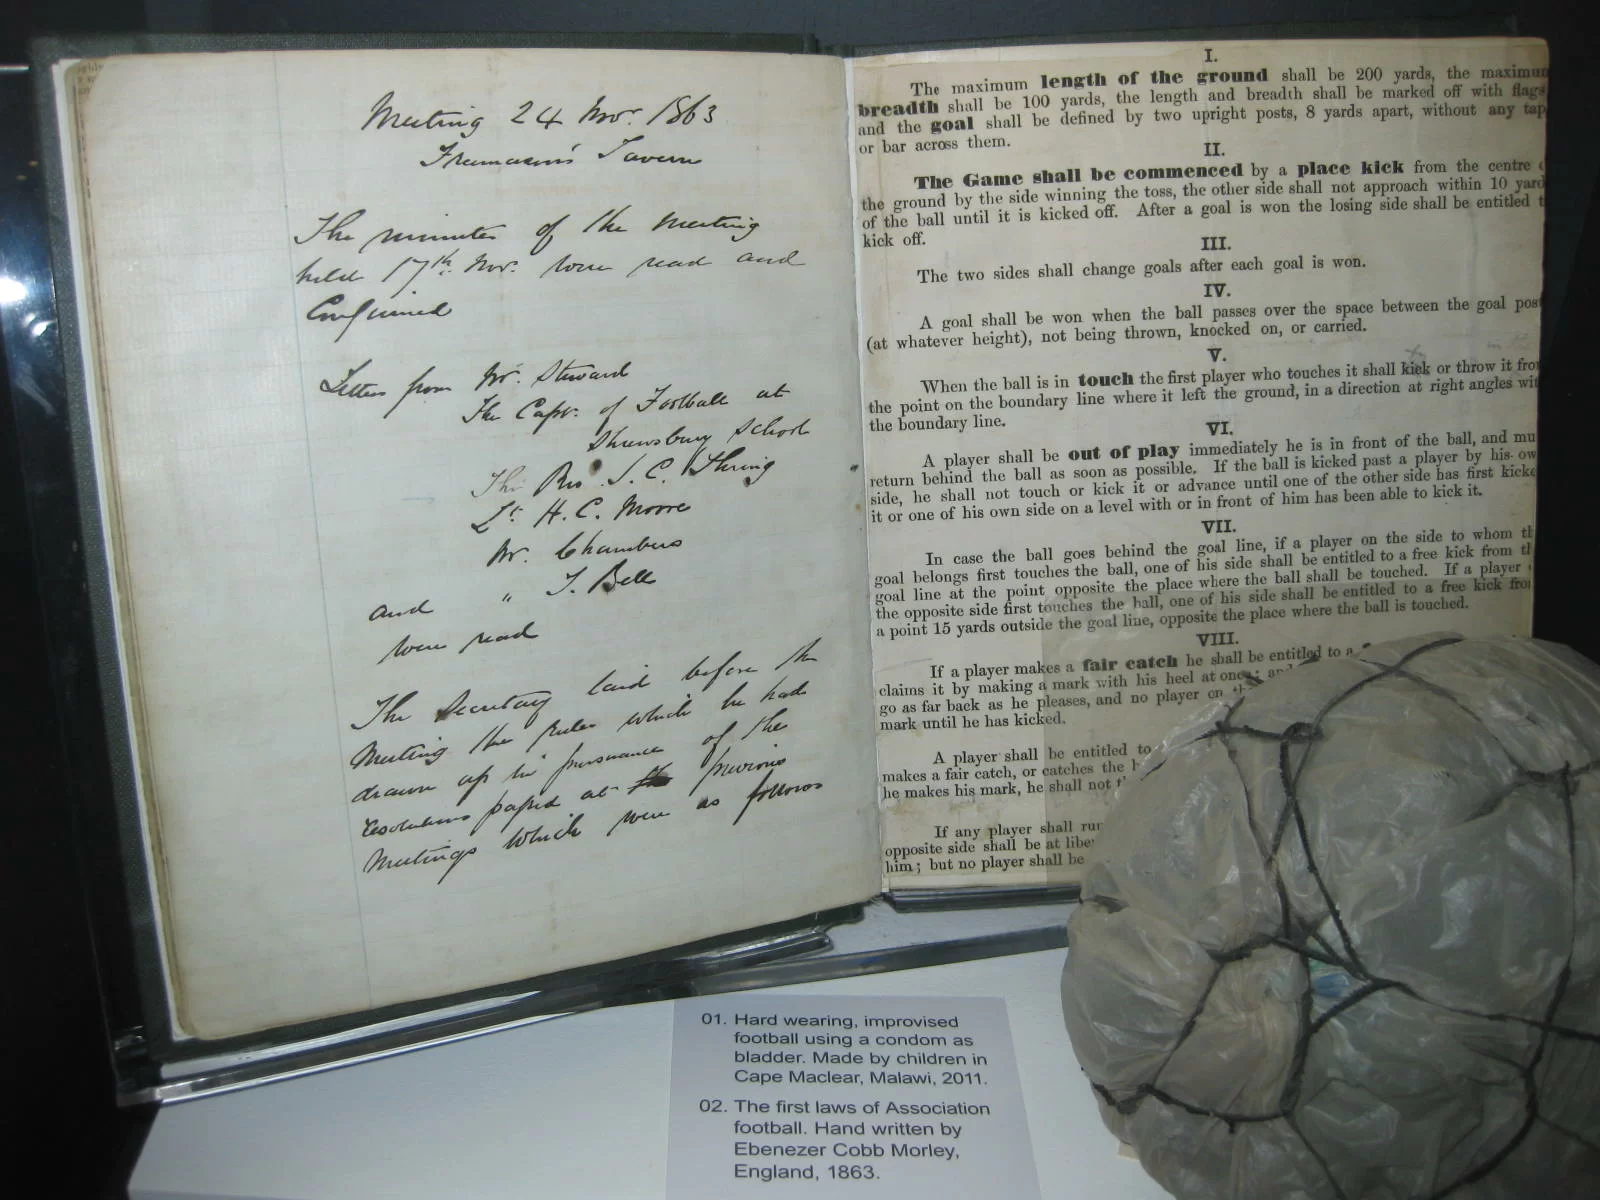 Meeting 24 Novr. 1863
Freemason's Tavern
The minutes of the Meeting
held 17th. Nov. were read and
Confirmed
Letters from Mr. Steward
The Capt. of Football at
Shrewsbury School
The Rev J. C. Thring
Lt. H. C. Moore
Mr. Chambers
and " J. Bell
were read
The Secretary laid before the
Meeting the rules which he had
drawn up in pursuance of the
resolutions passed at the previous
Meetings which were as follows
I.
The maximum length of the ground shall be 200 yards, the maximum
breadth shall be 100 yards, the length and breadth shall be marked off with flags
and the goal shall be defined by two upright posts, 8 yards apart, without any tap
or bar across them.
II.
The Game shall be commenced by a place kick from the centre
the ground by the side winning the toss, the other side shall not approach within 10 yard
of the ball until it is kicked off. After a goal is won the losing side shall be entitled t
kick off.
III.
The two sides shall change goals after each goal is won.
IV.
A goal shall be won when the ball passes over the space between the goal post
(at whatever height), not being thrown, knocked on, or carried.
V.
When the ball is in touch the first player who touches it shall kick or throw it from
the point on the boundary line where it left the ground, in a direction at right angles wit
the boundary line.
VI.
A player shall be out of play immediately he is in front of the ball, and mu
return behind the ball as soon as possible. If the ball is kicked past a player by his ow
side, he shall not touch or kick it or advance until one of the other side has first kicke
it or one of his own side on a level with or in front of him has been able to kick it.
VII.
In case the ball goes behind the goal line, if a player on the side to whom th
goal belongs first touches the ball, one of his side shall be entitled to a free kick from th
goal line at the point opposite the place where the ball shall be touched. If a player
the opposite side first touches the ball, one of his side shall be entitled to a free kick from
a point 15 yards outside the goal line, opposite the place where the ball is touched.
VIII.
If a player makes a fair catch he shall be entitled to a
claims it by making a mark with his heel at once; and
go as far back as he pleases, and no player on
mark until he has kicked.
A player shall be entitled to
makes a fair catch, or catches the
he makes his mark, he shall not
If any player shall run
opposite side shall be at liber
him; but no player shall be
01. Hard wearing, improvised
football using a condom as
bladder. Made by children in
Cape Maclear, Malawi, 2011.
02. The first laws of Association
football. Hand written by
Ebenezer Cobb Morley,
England, 1863.